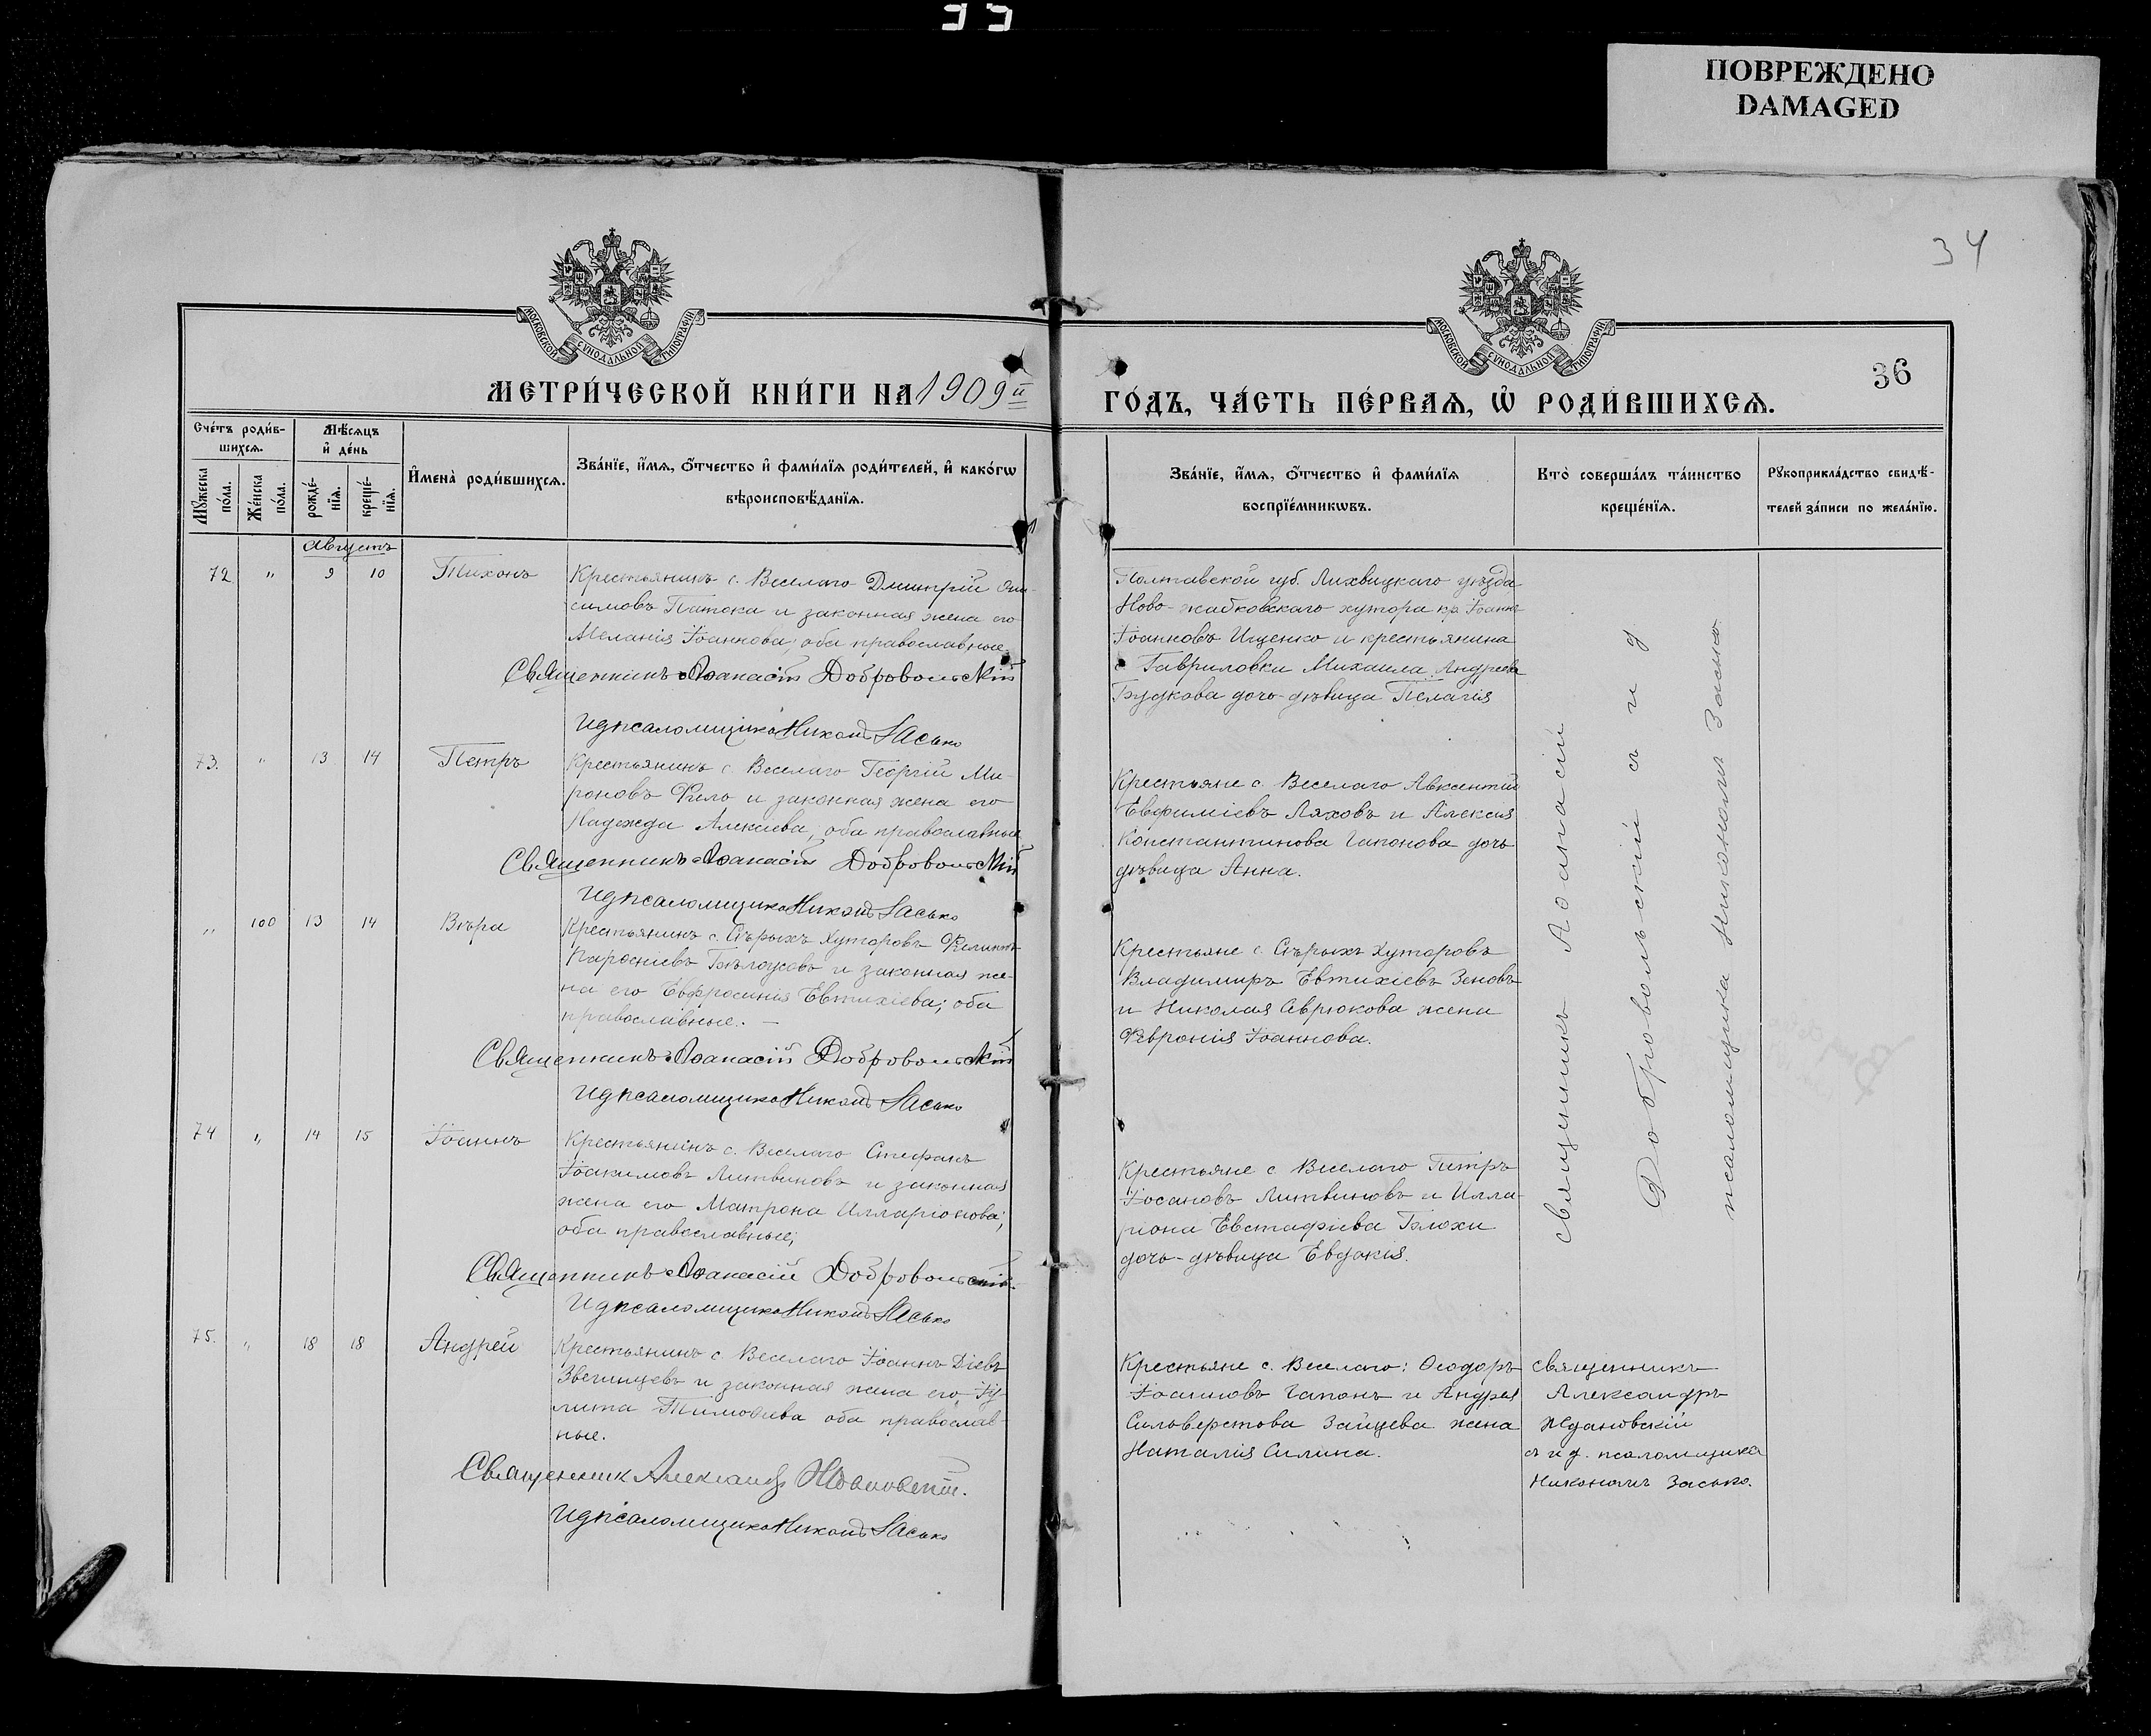 ПОВРЕЖДЕНО
DAMAGED
34
36
МОСКОВСКОЙ СѴНОДАЛЬНОЙ ТИПОГРАФІИ
МОСКОВСКОЙ СѴНОДАЛЬНОЙ ТИПОГРАФІИ
МЕТРИ́ЧЕСКОЙ КНИ́ГИ НА 1909й
ГО́ДЪ, ЧА́СТЬ ПЕ́РВАѦ, Ѡ҆ РОДИ́ВШИХСѦ.
Сче́тъ роди́в-
шихсѧ.
Мѣ́сѧцъ
и҆ де́нь
Мꙋ́жеска
по́ла.
Же́нска
по́ла.
рожде́-
нїѧ.
креще́-
нїѧ.
И҆мена̀ роди́вшихсѧ.
Зва́нїе, и҆́мѧ, ѻ҆́тчество и҆ фами́лїѧ роди́телей, и҆ како́гѡ
вѣроисповѣ́данїѧ.
Зва́нїе, и҆́мѧ, ѻ҆́тчество и҆ фами́лїѧ
воспрїе́мникѡвъ.
Кто̀ соверша́лъ та́инство
креще́нїѧ.
Рꙋкоприкла́дство свидѣ́-
телей за́писи по жела́нїю.
Августъ
72 " 9 10 Тихонъ
Крестьянинъ с. Веселаго Дмитрій Они-
симовъ Патока и законная жена его
Меланія Іоаннова, оба православные.
Священникъ Аѳанасій Добровольскій
Ид псаломщика Никонъ Засько
Полтавской губ. Лихвицкаго уѣзда
Ново-жабковскаго хутора кр. Іоаннъ
Іоанновъ Ищенко и крестьянина
с. Гавриловки Михаила Андреева
Будкова дочь-дѣвица Пелагія
73. " 13 14 Петръ
Крестьянинъ с. Веселаго Георгій Ми-
роновъ Фило и законная жена его
Надежда Алексіева, оба православные
Священникъ Аѳанасій Добровольскій
Ид псаломщика Никонъ Засько
Крестьяне с. Веселаго Авксентій
Евфиміевъ Ляховъ и Алексія
Константинова Гапонова дочь
дѣвица Анна.
" 100 13 14 Вѣра
Крестьянинъ с. Сѣрыхъ Хуторовъ Филиппъ
Пароеніевъ Бѣлоусовъ и законная же-
на его Евфросинія Евтихіева; оба
православные. —
Священникъ Аѳанасій Добровольскій
Ид псаломщика Никонъ Засько
Крестьяне с. Сѣрыхъ Хуторовъ
Владимиръ Евтихіевъ Зеновъ
и Николая Севрюкова жена
Февронія Іоаннова.
74 " 14 15 Іоаннъ
Крестьянинъ с. Веселаго Стефанъ
Іоакимовъ Литвиновъ и законная
жена его Матрона Илларіонова;
оба православные;
Священникъ Аѳанасій Добровольскій
Ид псаломщика Никонъ Засько
Крестьяне с. Веселаго Петръ
Литвиновъ и Илла-
ріона Евстафіева Блохи
дочь-дѣвица Евдокія.
священникъ Аѳанасій
Добровольскій съ и д
псаломщика Никономъ Засько
75. " 18 18 Андрей
Крестьянинъ с. Веселаго Іоаннъ Діевъ
Звегинцевъ и законная жена его Іу-
лита Тимоѳеева оба православ-
ные.
Священник Александр Ждановскій.
Ид псаломщика Никонъ Засько
Крестьяне с. Веселаго: Ѳеодоръ
Іоанновъ Гапонъ и Андрея
Сильверстова Зайцева жена
Наталія Силина.
священникъ
Александръ
Ждановскій
съ и д. псаломщика
Никономъ Засько.